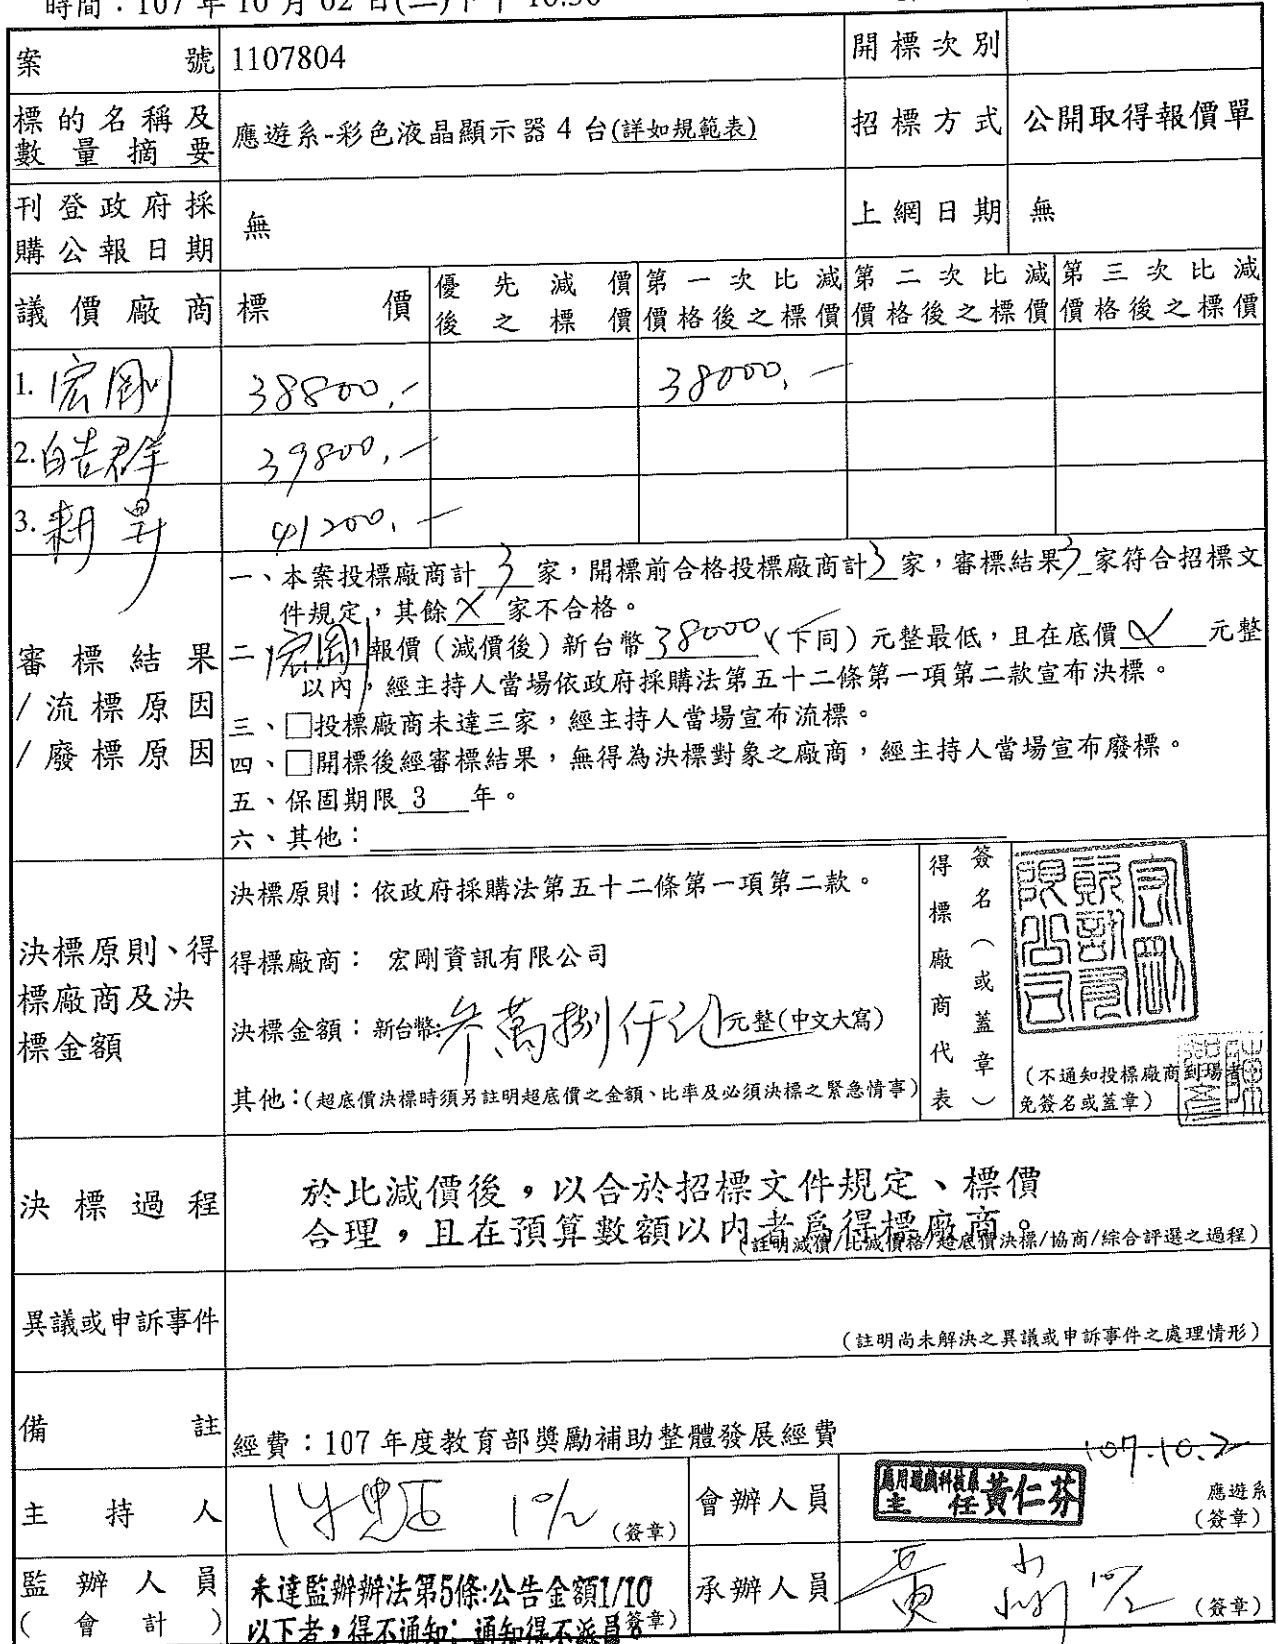 時間：107 年 10 月 02 日(二)下午 10:30
案號 1107804 開標次別
標的名稱及數量摘要 應遊系-彩色液晶顯示器 4 台(詳如規範表) 招標方式 公開取得報價單
刊登政府採購公報日期 無 上網日期 無
議價廠商 標價 優先減價後之標價 第一次比減價格後之標價 第二次比減價格後之標價 第三次比減價格後之標價
1. 宏剛 38800.- 38000.-
2. 皓群 39800.-
3. 耕昇 41200.-
審標結果/流標原因/廢標原因
一、本案投標廠商計 3 家，開標前合格投標廠商計 3 家，審標結果 3 家符合招標文
件規定，其餘 X 家不合格。
二、宏剛 報價（減價後）新台幣 38000 （下同）元整最低，且在底價 X 元整
以內，經主持人當場依政府採購法第五十二條第一項第二款宣布決標。
三、□投標廠商未達三家，經主持人當場宣布流標。
四、□開標後經審標結果，無得為決標對象之廠商，經主持人當場宣布廢標。
五、保固期限 3 年。
六、其他：
決標原則、得標廠商及決標金額
決標原則：依政府採購法第五十二條第一項第二款。
得標廠商： 宏剛資訊有限公司
決標金額：新台幣:參萬捌仟元元整(中文大寫)
其他：(超底價決標時須另註明超底價之金額、比率及必須決標之緊急情事)
得標廠商代表 簽名（或蓋章）
宏剛資訊有限公司
（不通知投標廠商到場者
免簽名或蓋章）
決標過程
於比減價後，以合於招標文件規定、標價
合理，且在預算數額以內者為得標廠商。
(註明減價/比減價格/超底價決標/協商/綜合評選之過程)
異議或申訴事件
(註明尚未解決之異議或申訴事件之處理情形)
備註 經費：107 年度教育部獎勵補助整體發展經費
107.10.2
主持人 10/2 (簽章) 會辦人員 應用遊戲科技系
主任 黃仁芬 應遊系
(簽章)
監辦人員
(會計)
未達監辦辦法第5條:公告金額1/10
以下者，得不通知；通知得不派員。
(簽章) 承辦人員 黃 10/2 (簽章)